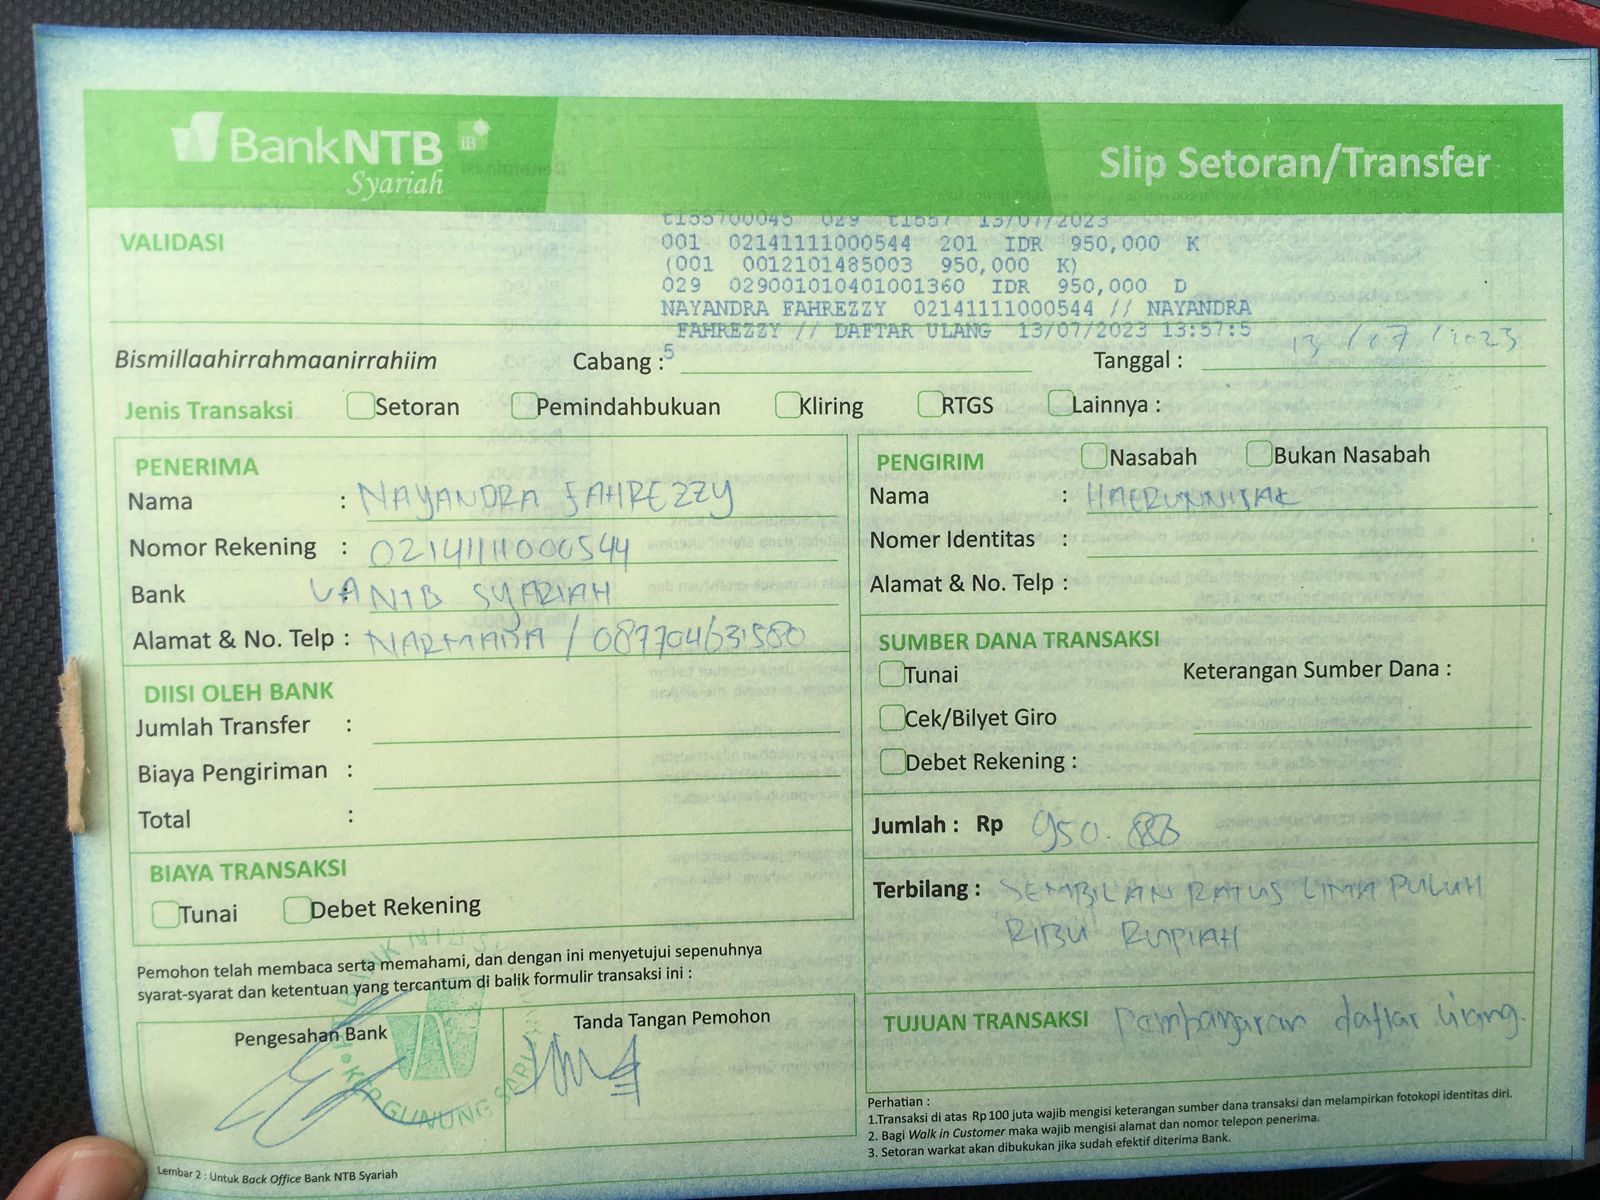 BankNTB
Syariah
Slip Setoran/Transfer
VALIDASI
t155700045 029 t1557 13/07/2023
001 02141111000544 201 IDR 950,000 K
(001 0012101485003 950,000 K)
029 029001010401001360 IDR 950,000 D
NAYANDRA FAHREZZY 02141111000544 // NAYANDRA
FAHREZZY // DAFTAR ULANG 13/07/2023 13:57:5
5
Bismillaahirrahmaanirrahiim Cabang : Tanggal : 13/07/2023
Jenis Transaksi Setoran Pemindahbukuan Kliring RTGS Lainnya :
PENERIMA
Nama : NAYANDRA FAHREZZY
Nomor Rekening : 02141111000544
Bank VA NTB SYARIAH
Alamat & No. Telp : NARMADA / 087704631580
DIISI OLEH BANK
Jumlah Transfer :
Biaya Pengiriman :
Total :
BIAYA TRANSAKSI
Tunai Debet Rekening
Pemohon telah membaca serta memahami, dan dengan ini menyetujui sepenuhnya
syarat-syarat dan ketentuan yang tercantum di balik formulir transaksi ini :
Pengesahan Bank
Tanda Tangan Pemohon
KCP GUNUNG SARI
Lembar 2 : Untuk Back Office Bank NTB Syariah
PENGIRIM Nasabah Bukan Nasabah
Nama : HAERUNNISAK
Nomer Identitas :
Alamat & No. Telp :
SUMBER DANA TRANSAKSI
Tunai Keterangan Sumber Dana :
Cek/Bilyet Giro
Debet Rekening :
Jumlah : Rp 950.000
Terbilang : SEMBILAN RATUS LIMA PULUH
RIBU RUPIAH
TUJUAN TRANSAKSI Pembayaran daftar ulang.
Perhatian :
1.Transaksi di atas Rp 100 juta wajib mengisi keterangan sumber dana transaksi dan melampirkan fotokopi identitas diri.
2. Bagi Walk in Customer maka wajib mengisi alamat dan nomor telepon penerima.
3. Setoran warkat akan dibukukan jika sudah efektif diterima Bank.